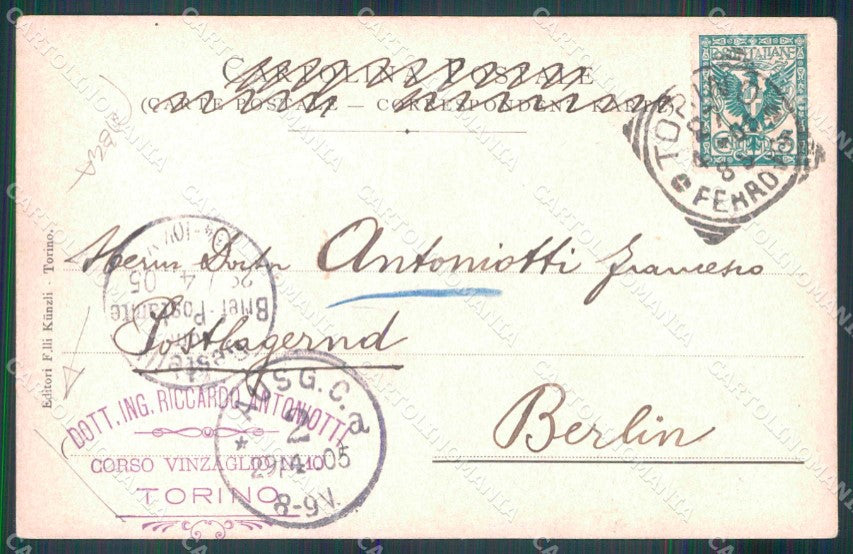 CARTOLINA POSTALE
(CARTE POSTALE — CORRESPONDENZ-KARTE)
POSTE ITALIANE
TORINO
FERROVIA
Herrn Doctor Antoniotti Francesco
Postlagernd
Berlin
Editori F.lli Künzli - Torino.
4-10V
4
05
Brief-Postamte
AUSG.C.a
2
29.4.05
8-9V.
DOTT. ING. RICCARDO ANTONIOTTI
CORSO VINZAGLIO, N. 10
TORINO
CARTOLINOMANIA